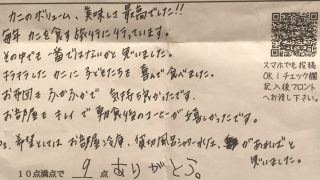 カニのボリューム、美味しさ最高でした!!
毎年カニを食す旅行に行っています。
その中でも一番ではないかと思いました。
カニに子どもたちも喜んで食べました。
お布団もふかふかで気持ち良かったです。
お部屋もキレイで朝食後のコーヒーが嬉しかったです。
希望としてはお部屋冷蔵庫、貸切風呂シャワー水圧、があればと
思いました。
10点満点で 9 点 ありがとう。
スマホでも投稿
OK!チェック欄
記入後フロント
へお渡し下さい。